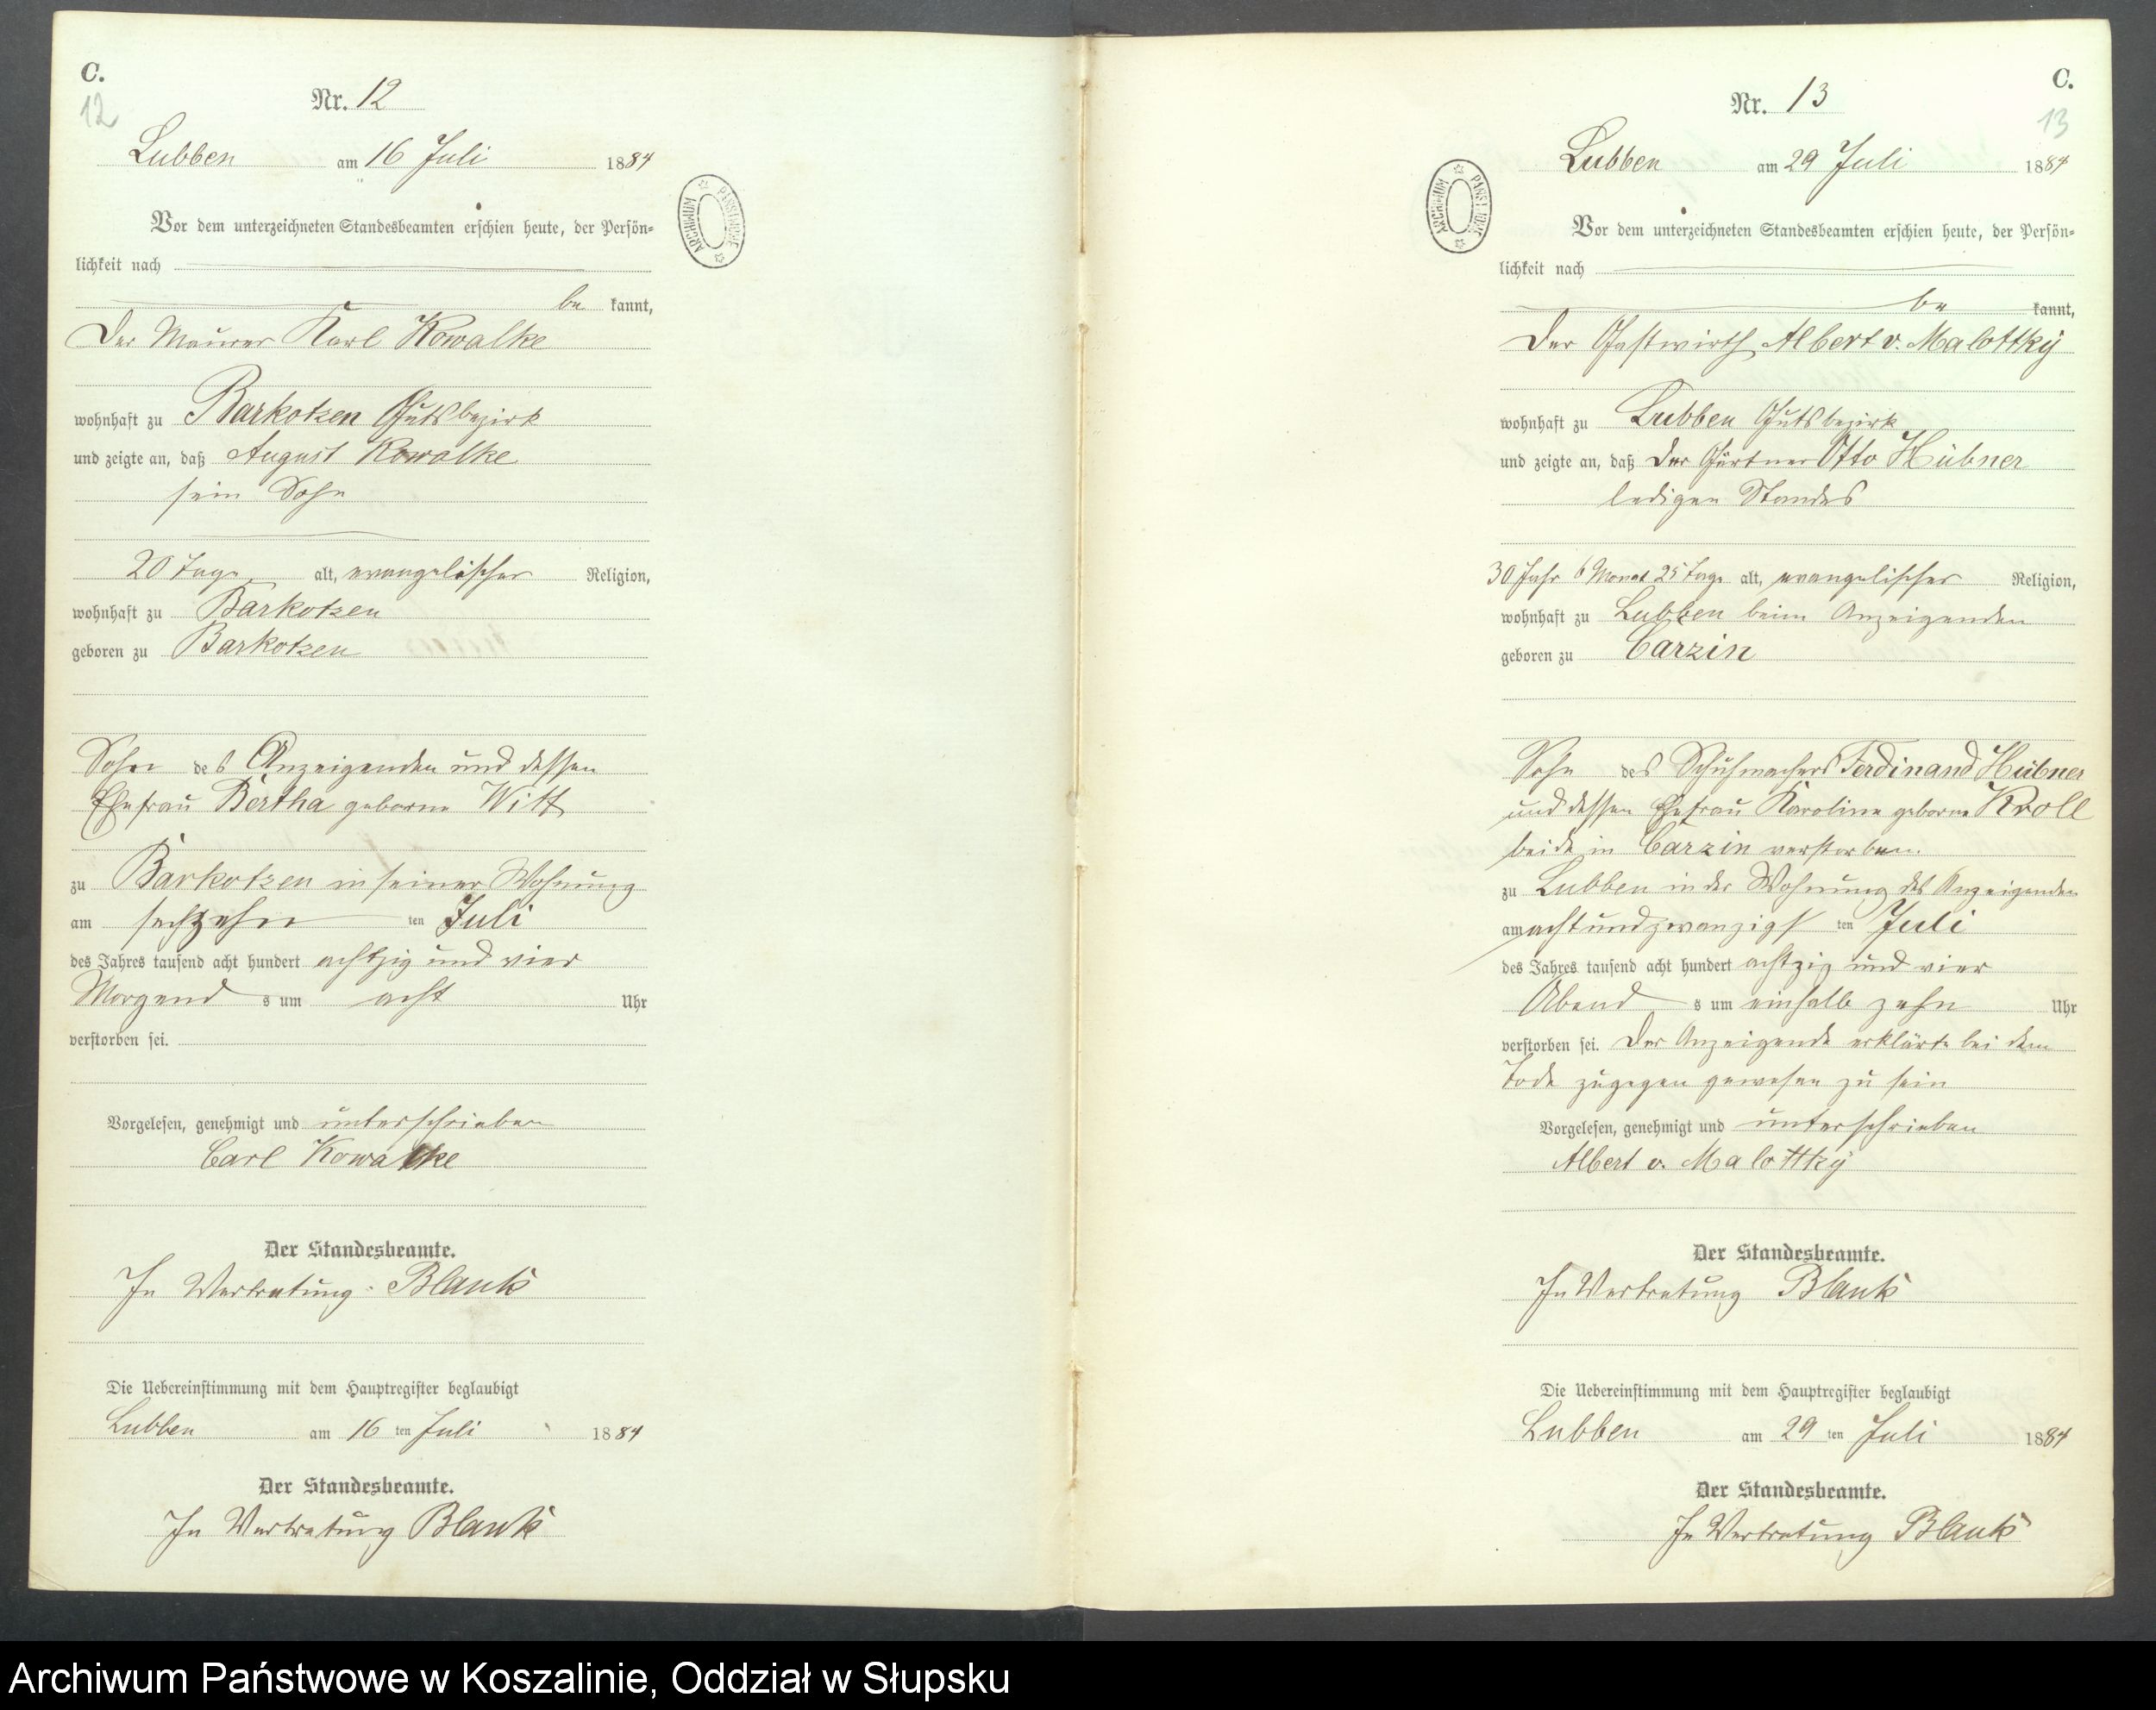 C.
12
Nr. 12
Lubben am 16 Juli 1884
Vor dem unterzeichneten Standesbeamten erschien heute, der Persön-
lichkeit nach
be kannt,
Der Maurer Karl Kowalke
wohnhaft zu Barkotzen Gutsbezirk
und zeigte an, daß August Kowalke
sein Sohn
20 Tage alt, evangelischer Religion,
wohnhaft zu Barkotzen
geboren zu Barkotzen
Sohn des Anzeigenden und dessen
Ehefrau Bertha geborne Witt
zu Barkotzen in seiner Wohnung
am sechzehn ten Juli
des Jahres tausend acht hundert achtzig und vier
Morgend s um acht Uhr
verstorben sei.
Vorgelesen, genehmigt und unterschrieben
Carl Kowalke
Der Standesbeamte.
In Vertretung. Blank
Die Uebereinstimmung mit dem Hauptregister beglaubigt
Lubben am 16 ten Juli 1884
Der Standesbeamte.
In Vertretung Blank
ARCHIWUM PAŃSTWOWE
C.
13
Nr. 13
Lubben am 29 Juli 1884
ARCHIWUM PAŃSTWOWE
Vor dem unterzeichneten Standesbeamten erschien heute, der Persön-
lichkeit nach
be kannt,
Der Gastwirth Albert v. Malottky
wohnhaft zu Lubben Gutsbezirk
und zeigte an, daß der Gärtner Otto Hübner
ledigen Standes
30 Jahr 6 Monat 25 Tage alt, evangelischer Religion,
wohnhaft zu Lubben beim Anzeigenden
geboren zu Carzin
Sohn des Schuhmachers Ferdinand Hübner
und dessen Ehefrau Karoline geborne Kroll
beide in Carzin verstorben.
zu Lubben in der Wohnung des Anzeigenden
am achtundzwanzigs ten Juli
des Jahres tausend acht hundert achtzig und vier
Abend s um einhalb zehn Uhr
verstorben sei. Der Anzeigende erklärte bei dem
Tode zugegen gewesen zu sein
Vorgelesen, genehmigt und unterschrieben
Albert v. Malottky
Der Standesbeamte.
In Vertretung Blank
Die Uebereinstimmung mit dem Hauptregister beglaubigt
Lubben am 29 ten Juli 1884
Der Standesbeamte.
In Vertretung Blank
Archiwum Państwowe w Koszalinie, Oddział w Słupsku